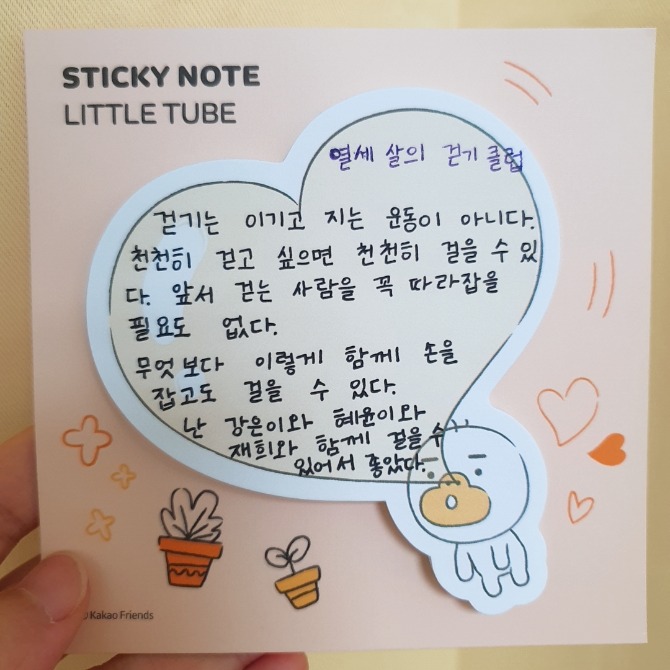 STICKY NOTE
LITTLE TUBE
열세 살의 걷기 클럽
걷기는 이기고 지는 운동이 아니다.
천천히 걷고 싶으면 천천히 걸을 수 있
다. 앞서 걷는 사람을 꼭 따라잡을
필요도 없다.
무엇보다 이렇게 함께 손을
잡고도 걸을 수 있다.
난 강은이와 혜윤이와
재희와 함께 걸을 수
있어서 좋았다.
Kakao Friends